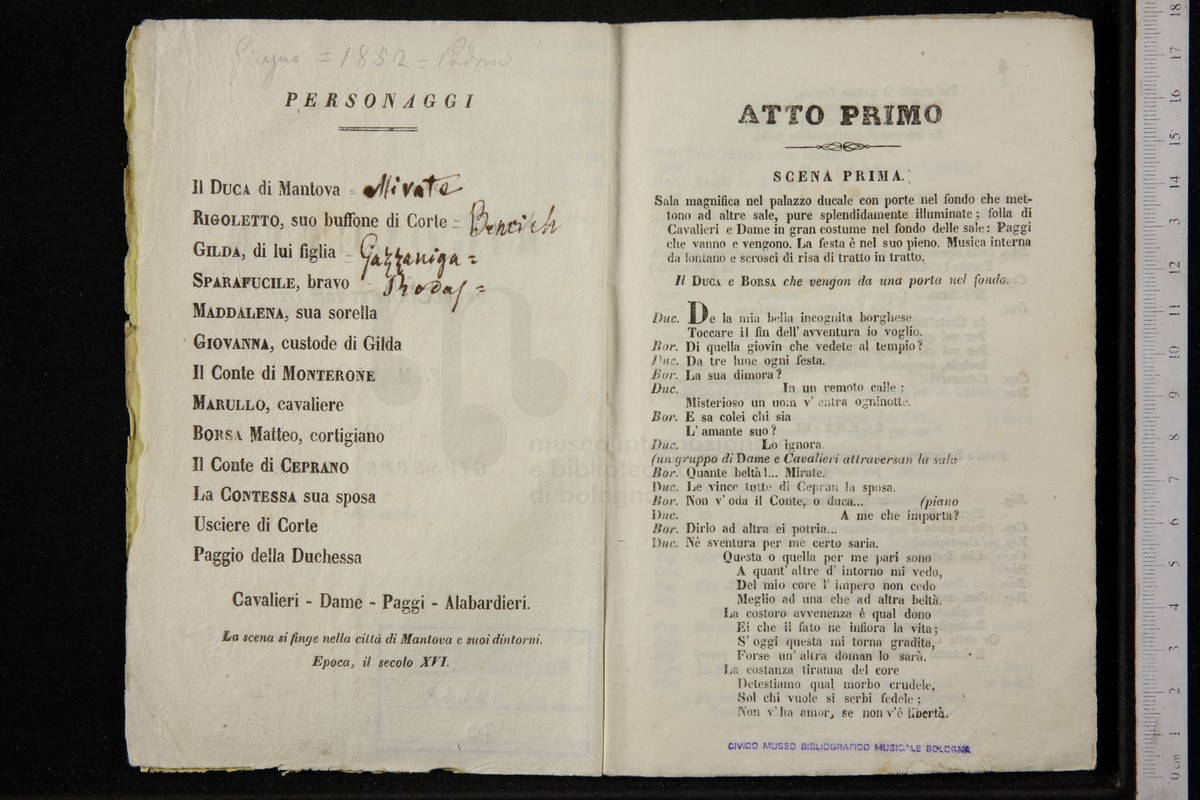 Giugno = 1852 = Padova
PERSONAGGI
Il DUCA di Mantova = Mirate
RIGOLETTO, suo buffone di Corte =
GILDA, di lui figlia = Gazzaniga =
SPARAFUCILE, bravo = Rodas =
MADDALENA, sua sorella
GIOVANNA, custode di Gilda
Il Conte di MONTERONE
MARULLO, cavaliere
BORSA Matteo, cortigiano
Il Conte di CEPRANO
La CONTESSA sua sposa
Usciere di Corte
Paggio della Duchessa
Cavalieri - Dame - Paggi - Alabardieri.
La scena si finge nella città di Mantova e suoi dintorni.
Epoca, il secolo XVI.
ATTO PRIMO
SCENA PRIMA.
Sala magnifica nel palazzo ducale con porte nel fondo che met-
tono ad altre sale, pure splendidamente illuminate; folla di
Cavalieri e Dame in gran costume nel fondo delle sale: Paggi
che vanno e vengono. La festa è nel suo pieno. Musica interna
da lontano e scrosci di risa di tratto in tratto.
Il DUCA e BORSA che vengon da una porta nel fondo.
Duc. De la mia bella incognita borghese
Toccare il fin dell' avventura io voglio.
Bor. Di quella giovin che vedete al tempio?
Duc. Da tre lune ogni festa.
Bor. La sua dimora?
Duc. In un remoto calle;
Misterioso un uom v' entra ogninotte.
Bor. E sa colei chi sia
L' amante suo?
Duc. Lo ignora.
(un gruppo di Dame e Cavalieri attraversan la sala
Bor. Quante beltà!... Mirate.
Duc. Le vince tutte di Cepran la sposa.
Bor. Non v' oda il Conte, o duca... (piano
Duc. A me che importa?
Bor. Dirlo ad altra ei potria...
Duc. Nè sventura per me certo saria.
Questa o quella per me pari sono
A quant' altre d' intorno mi vedo,
Del mio core l' impero non cedo
Meglio ad una che ad altra beltà.
La costoro avvenenza è qual dono
Ei che il fato ne infiora la vita;
S' oggi questa mi torna gradita,
Forse un' altra doman lo sarà.
La costanza tiranna del core
Detestiamo qual morbo crudele,
Sol chi vuole si serbi fedele;
Non v' ha amor, se non v'è libertà.
CIVICO MUSEO BIBLIOGRAFICO MUSICALE BOLOGNA
museo internazion
e bibliotec
di bologna